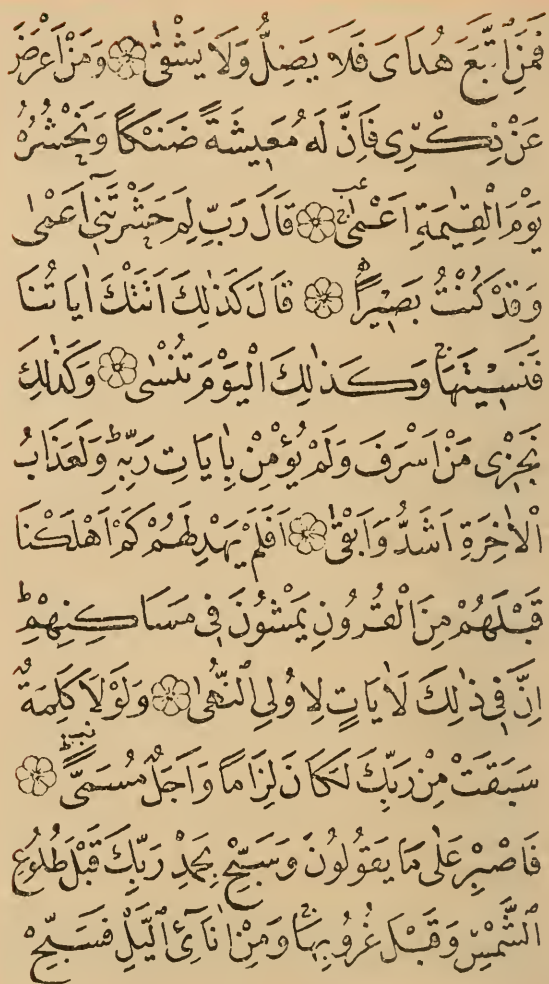 فَمَنِ اتَّبَعَ هُدَاىَ فَلَا يَضِلُّ وَلَا يَشْقٰى ۝ وَمَنْ اَعْرَضَ
عَنْ ذِكْرِى فَاِنَّ لَهُ مَعِيشَةً ضَنْكًا وَنَحْشُرُهُ
يَوْمَ الْقِيٰمَةِ اَعْمٰى ۝ قَالَ رَبِّ لِمَ حَشَرْتَنِى اَعْمٰى
وَقَدْ كُنْتُ بَصِيرًا ۝ قَالَ كَذٰلِكَ اَتَتْكَ اٰيَاتُنَا
فَنَسِيتَهَا وَكَذٰلِكَ الْيَوْمَ تُنْسٰى ۝ وَكَذٰلِكَ
نَجْزِى مَنْ اَسْرَفَ وَلَمْ يُؤْمِنْ بِاٰيَاتِ رَبِّهِ وَلَعَذَابُ
الْاٰخِرَةِ اَشَدُّ وَاَبْقٰى ۝ اَفَلَمْ يَهْدِ لَهُمْ كَمْ اَهْلَكْنَا
قَبْلَهُمْ مِنَ الْقُرُونِ يَمْشُونَ فِى مَسَاكِنِهِمْ
اِنَّ فِى ذٰلِكَ لَاٰيَاتٍ لِاُولِى النُّهٰى ۝ وَلَوْلَا كَلِمَةٌ
سَبَقَتْ مِنْ رَبِّكَ لَكَانَ لِزَامًا وَاَجَلٌ مُسَمًّى ۝
فَاصْبِرْ عَلٰى مَا يَقُولُونَ وَسَبِّحْ بِحَمْدِ رَبِّكَ قَبْلَ طُلُوعِ
الشَّمْسِ وَقَبْلَ غُرُوبِهَا وَمِنْ اٰنَائِ الَّيْلِ فَسَبِّحْ